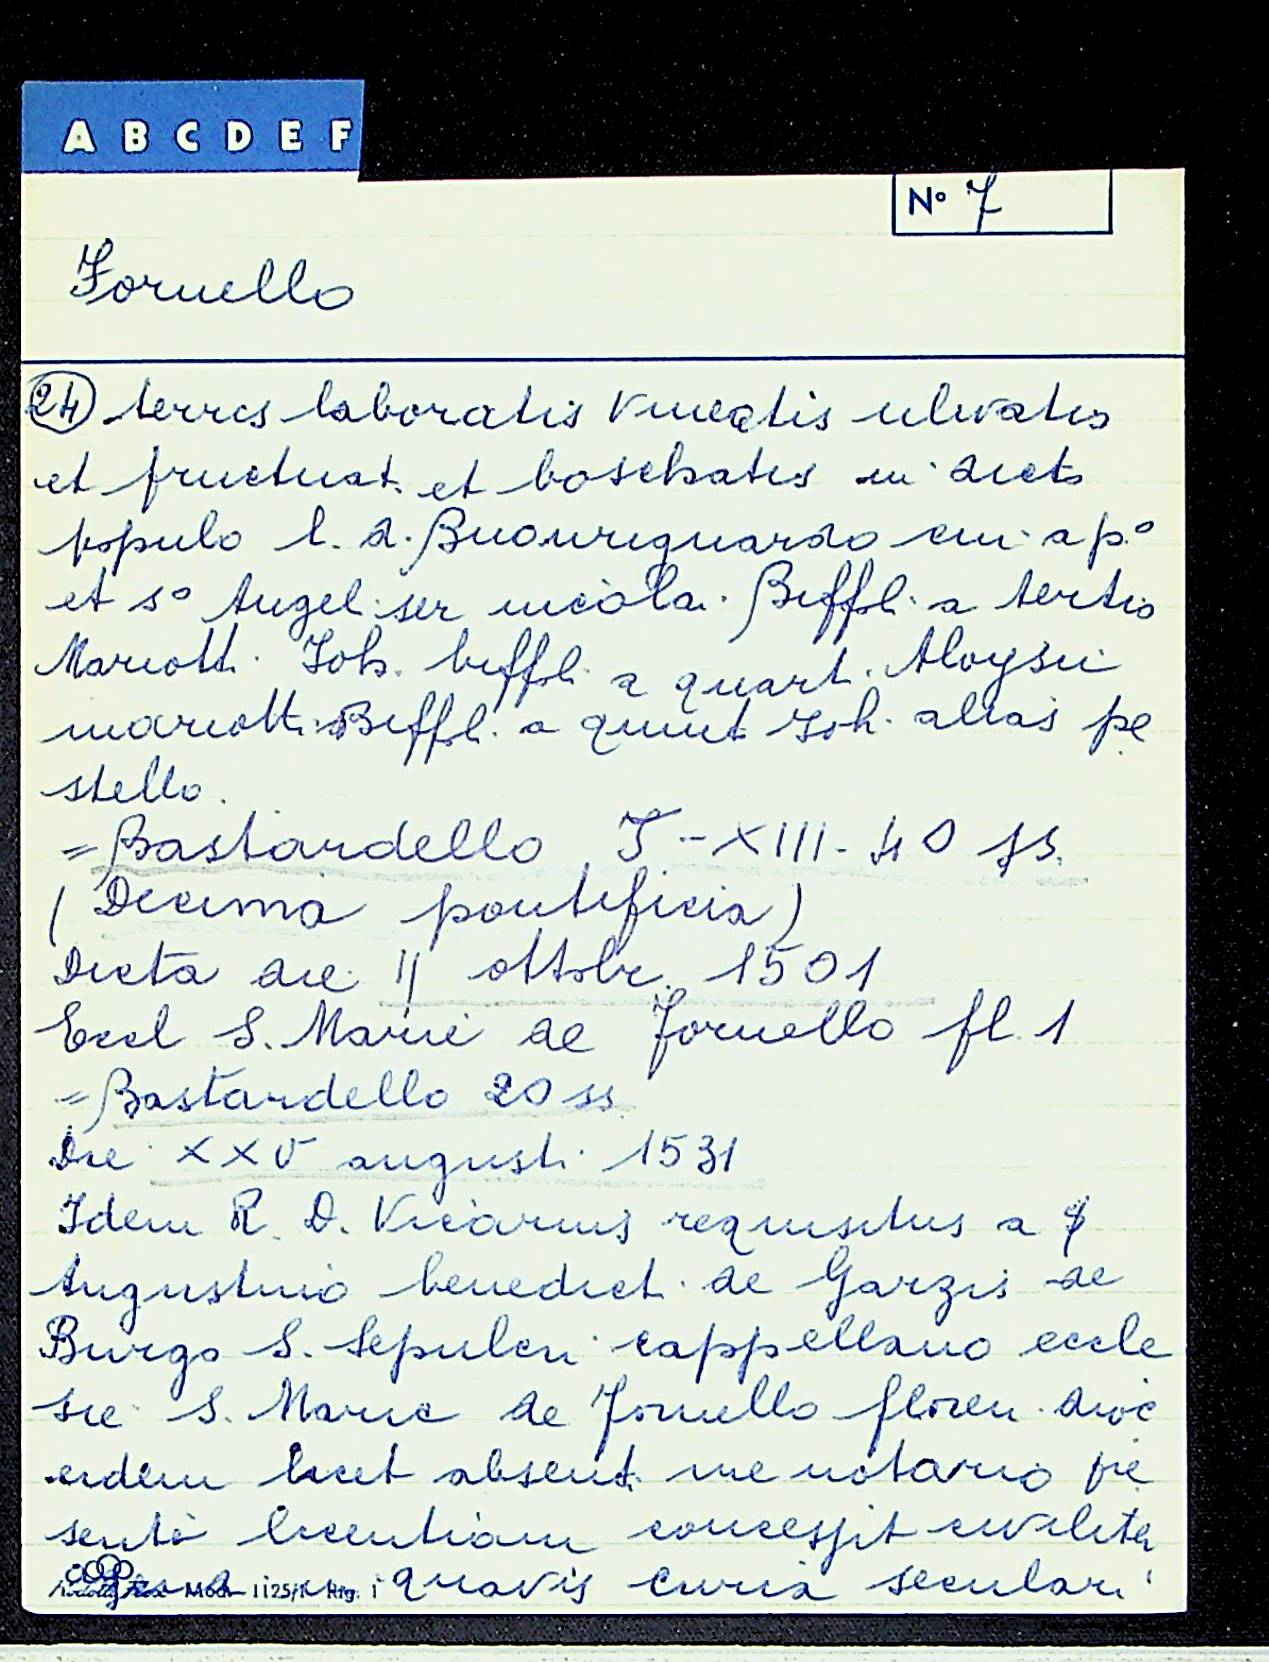 A B C D E F
N° 7
Fornello
(24) terris laboratis vineatis ulivatis
et fructuat. et boschatis in dicto
populo l. d. Buonriguardo cui a p.°
et s° Angel. ser nicola. Biffol. a tertio
Mariott. Joh. biffol. a quart. Aloysii
mariotti Biffol. a quint Joh. alias pe
stello.
= Bastardello I-XIII-40 ss.
(Decima pontificia)
Dicta die 11 ottobr. 1501
Eccl S. Marie de Fornello fl. 1
= Bastardello 20 ss
Die XXV augusti. 1531
Idem R. D. Vicarius requisitus a
Augustino benedict. de Garzis de
Burgo S. Sepulcri cappellano eccle
sie S. Marie de Fornello floren. dioc
eidem licet absent. me notario pre
senti licentiam concessit civiliter
in quavis curia seculari
Mod. 1125/1 Rig. 1